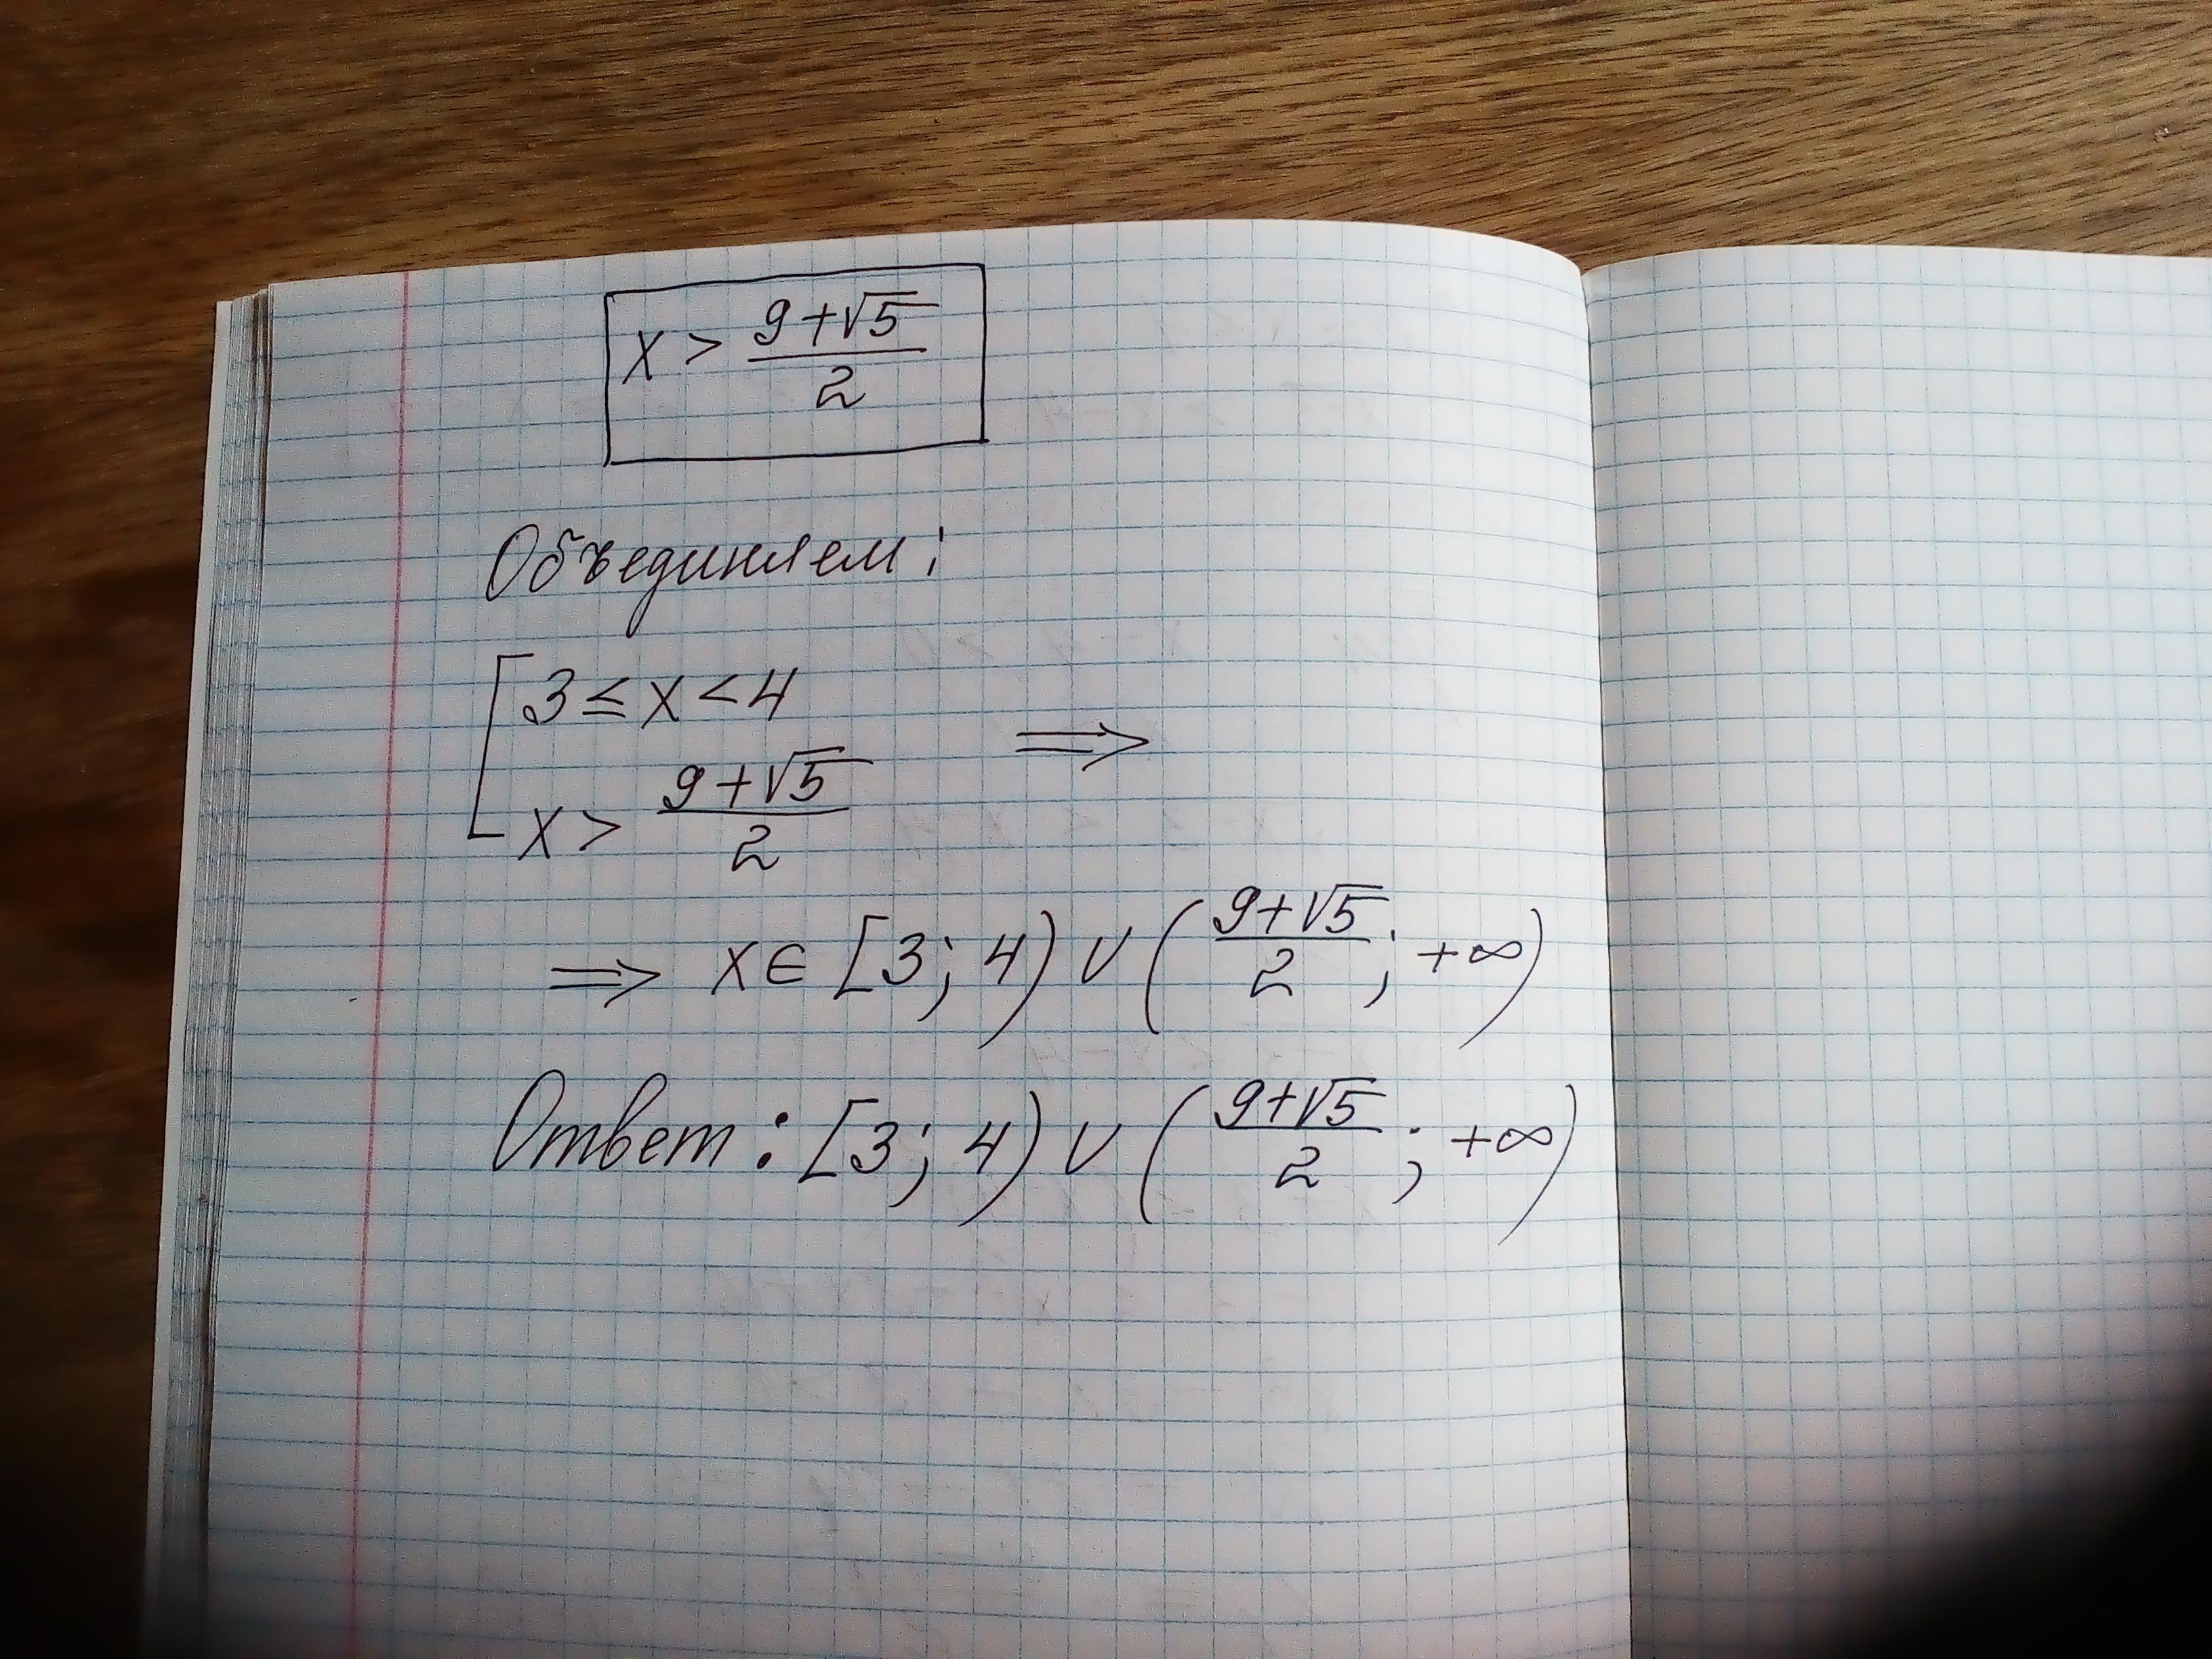 x > (9+√5)/2
Объединяем:
[ 3 ≤ x < 4
x > (9+√5)/2 ⟹
⟹ x ∈ [3; 4) ∪ ((9+√5)/2; +∞)
Ответ: [3; 4) ∪ ((9+√5)/2; +∞)